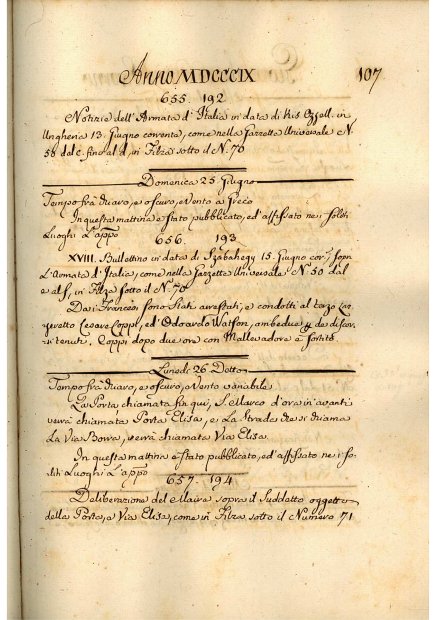 Anno MDCCCIX 107
655. 192
Notizie dell'Armata d'Italia in data di Kis Czell. in
Ungheria 13. Giugno corrente, come nella Gazzetta Universale N.
50 dal c. fino al d, in Filza sotto il N. 70
Domenica 25 Giugno
Tempo frà chiaro, e oscuro, e Vento a Greco
In questa mattina è stato pubblicato, ed affissato ne i soliti
Luoghi L'app.o
656. 193
XVIII. Bullettino in data di Szabahegy 15. Giugno cor.e, sopra
L'Armata d'Italia, come nella Gazzette Universale N. 50 dal
e al f, in Filza sotto il N. 70
Dai Francesi sono stati arrestati, e condotti al Lazzeretto
Cesare Coppi, ed Odoardo Watson, ambedue per discorsi
tenuti. Coppi dopo due ore con Mallevadore è sortito.
Lunedi 26 Detto
Tempo frà chiaro, e oscuro, e Vento variabile
La Porta chiamata fin qui S. Marco d'ora in avanti
verrà chiamata Porta Elisa, e La Strada che si chiama
La Via Borra, verrà chiamata Via Elisa
In questa mattina è stato pubblicato, ed affissato ne i soliti
Luoghi L'app.o
657. 194
Deliberazione del Maire sopra il Suddetto oggetto
della Porta, e Via Elisa, come in Filza sotto il Numero 71